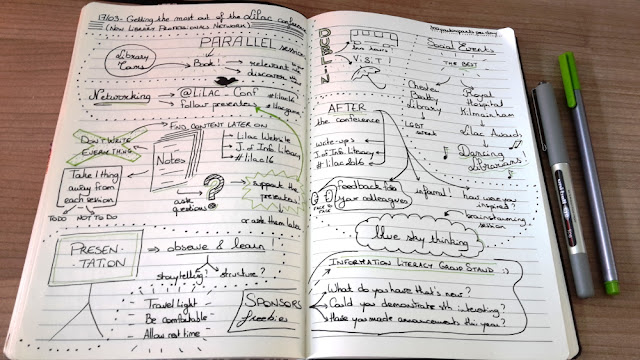 17/03 - Getting the most out of the Lilac conference
(New Library Professionals Network)
PARALLEL sessions
Library Tours
Book!
relevant to
discover
Networking
@LILAC-Conf
#lilac16
follow presenters
#lilacgame
FIND CONTENT LATER ON
DON'T WRITE EVERYTHING
Notes
Lilac Website
J of Info Literacy
#lilac16
Take 1 thing
away from
each session
TODO
NOT TO DO
ask
questions
?
support the
presenters!
or ask them later
PRESEN-
TATION
observe & learn!
storytelling?
structure?
Travel light
Be comfortable
Allow rest time
SPONSORS
freebies
DUBLIN
bus tours
VISIT!
Social Events
THE BEST
Chester
Beatty
Library
LGBT
week
Royal
Hospital
Kilmainham
Lilac Awards
Dancing
Librarians
AFTER
the conference
write-ups
J of Info Literacy
#lilac2016
Feedback to
your colleagues
informal!
how were you
inspired?
brainstorming
session
blue sky thinking
INFORMATION LITERACY GRAND STAND :)
What do you have that's new?
Could you demonstrate sth interesting?
Have you made announcements this year?